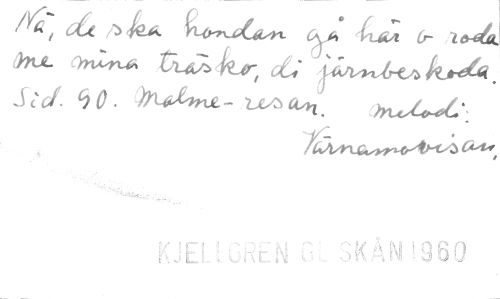 Nä, de ska hondan gå här o roda
me mina träsko, di järnbeskoda.
Sid. 90. Malme-resan. melodi:
Värnamovisan,
KJELLGREN GL SKÅN 1960